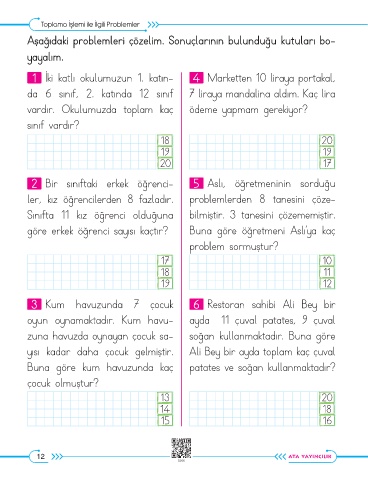 Toplama İşlemi ile İlgili Problemler
Aşağıdaki problemleri çözelim. Sonuçlarının bulunduğu kutuları bo-
yayalım.
1 İki katlı okulumuzun 1. katın-
da 6 sınıf, 2. katında 12 sınıf
vardır. Okulumuzda toplam kaç
sınıf vardır?
18
19
20
2 Bir sınıftaki erkek öğrenci-
ler, kız öğrencilerden 8 fazladır.
Sınıfta 11 kız öğrenci olduğuna
göre erkek öğrenci sayısı kaçtır?
17
18
19
3 Kum havuzunda 7 çocuk
oyun oynamaktadır. Kum havu-
zuna havuzda oynayan çocuk sa-
yısı kadar daha çocuk gelmiştir.
Buna göre kum havuzunda kaç
çocuk olmuştur?
13
14
15
4 Marketten 10 liraya portakal,
7 liraya mandalina aldım. Kaç lira
ödeme yapmam gerekiyor?
20
19
17
5 Aslı, öğretmeninin sorduğu
problemlerden 8 tanesini çöze-
bilmiştir. 3 tanesini çözememiştir.
Buna göre öğretmeni Aslı'ya kaç
problem sormuştur?
10
11
12
6 Restoran sahibi Ali Bey bir
ayda 11 çuval patates, 9 çuval
soğan kullanmaktadır. Buna göre
Ali Bey bir ayda toplam kaç çuval
patates ve soğan kullanmaktadır?
20
18
16
12
ATA YAYINCILIK